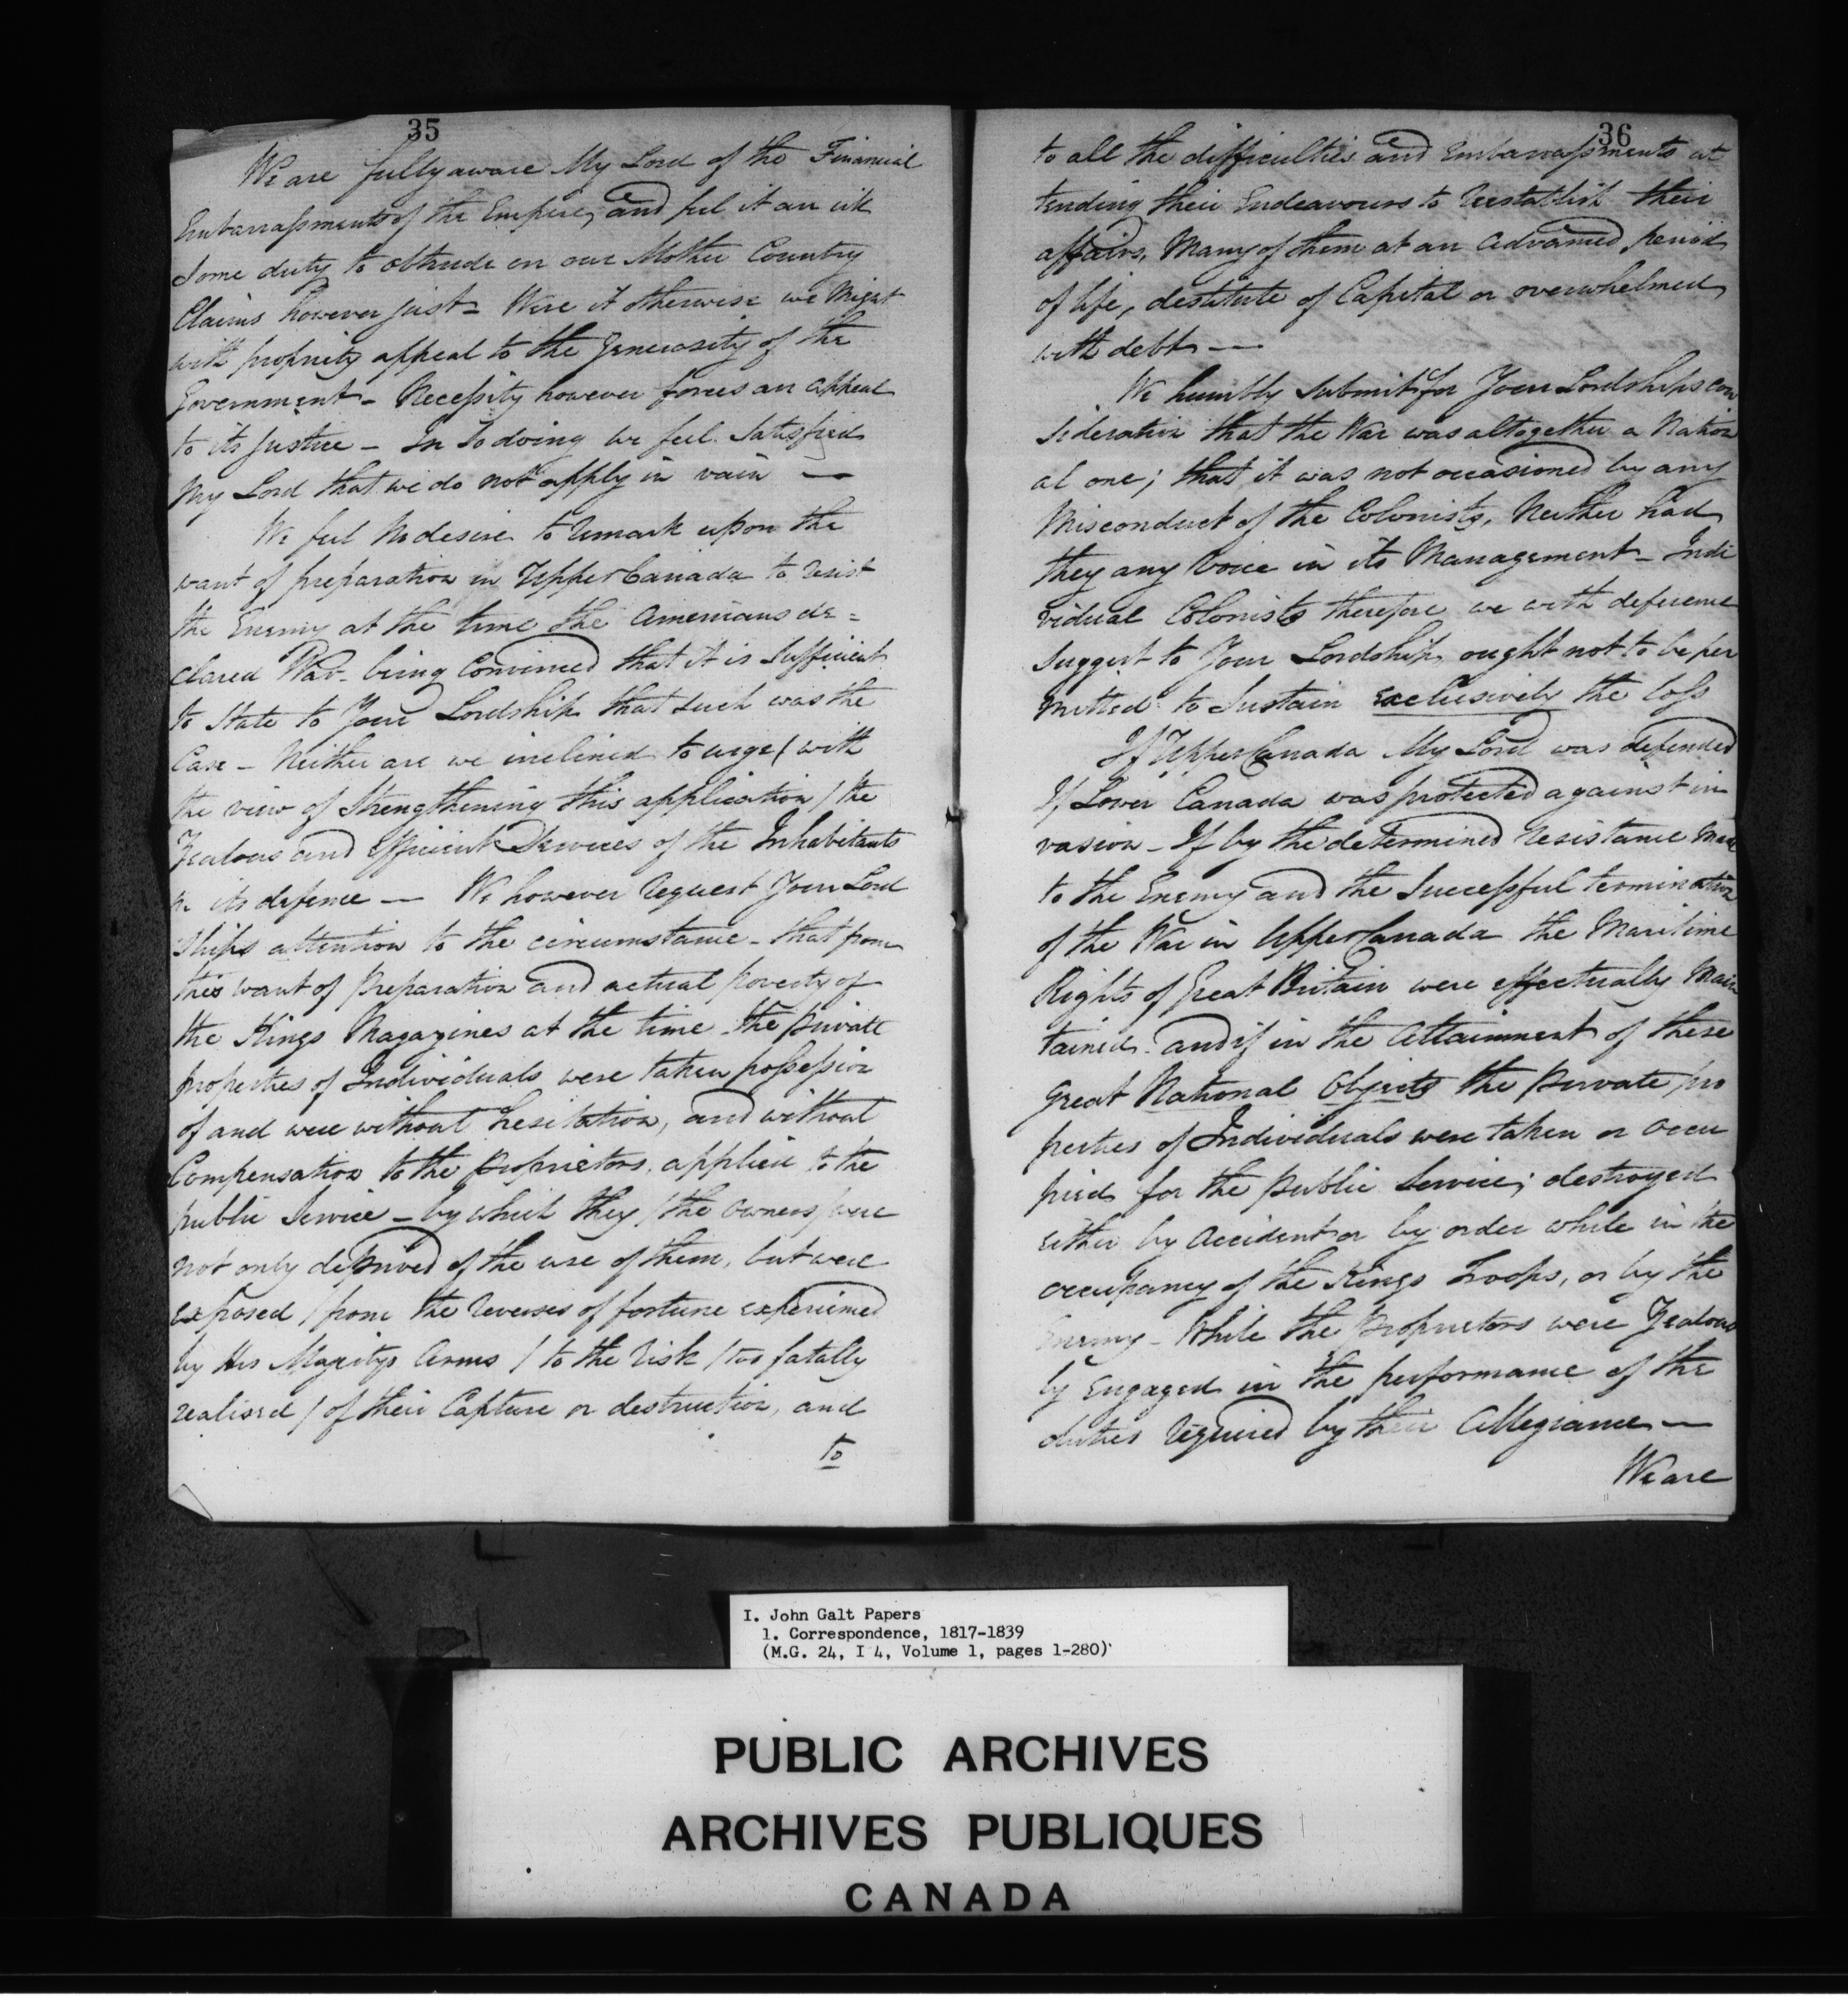 35
We are fully aware My Lord of the Financial
Embarrassments of the Empire, and feel it an irk
some duty to obtrude on our Mother Country
Claims however just - Were it otherwise we Might
with propriety appeal to the Generosity of the
Government - Necessity however forces an appeal
to its Justice - In So doing we feel Satisfied
My Lord that we do not apply in vain —
We feel No desire to Remark upon the
want of preparation in Upper Canada to resist
the Enemy at the time the Americans de=
clared War - being Convinced that it is Sufficient
to State to Your Lordship that such was the
Case - Neither are we inclined to urge / with
the view of Strengthening this application / the
Zealous and Efficient Services of the Inhabitants
in its defence — We however Request Your Lord
ships attention to the circumstance - that from
this want of preparation and actual poverty of
the Kings Magazines at the time - the private
properties of Individuals were taken possession
of and were without hesitation, and without
Compensation to the proprietors, applied to the
public Service - by which they / the owners / were
not only deprived of the use of them, but were
exposed / from the Reverses of fortune experienced
by His Majestys Arms / to the Risk / too fatally
realised / of their Capture or destruction, and
to
36
to all the difficulties and Embarrassments at
tending their Endeavours to Reestablish their
affairs, Many of them at an advanced period
of life, destitute of Capital or overwhelmed
with debt —
We humbly Submit for Your Lordships con
sideration that the War was altogether a Nation
al one; that it was not occasioned by any
Misconduct of the Colonists, Neither had
they any Voice in its Management - Indi
vidual Colonists therefore we with deference
Suggest to Your Lordship, ought not to be per
mitted to Sustain exclusively the loss
If Upper Canada My Lord was defended
If Lower Canada was protected against in
vasion - If by the determined resistance made
to the Enemy and the Successful termination
of the War in Upper Canada the Maritime
Rights of Great Britain were effectually Main
tained - and if in the Attainment of these
great National Objects the private pro
perties of Individuals were taken or occu
pied for the public Service; destroyed
either by Accident or by order while in the
occupancy of the Kings Troops, or by the
Enemy - While the Proprietors were Zealous
ly Engaged in the performance of the
duties Required by their Allegiance —
We are
I. John Galt Papers
1. Correspondence, 1817-1839
(M.G. 24, I 4, Volume 1, pages 1-280)
PUBLIC ARCHIVES
ARCHIVES PUBLIQUES
CANADA